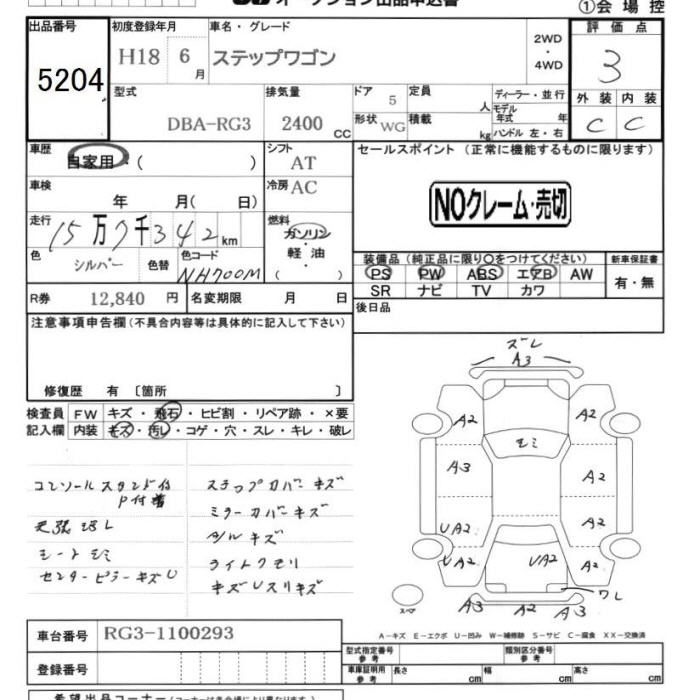 ①会場控
出品番号 初度登録年月 車名・グレード 評価点
5204 H18 6月 ステップワゴン 2WD・4WD 3
型式 排気量 ドア 定員 ディーラー・並行 外装 内装
DBA-RG3 2400cc 5 人 モデル年式 年 C C
形状 WG 積載 kg ハンドル 左・右
車歴 自家用・( ) シフト AT セールスポイント (正常に機能するものに限ります)
車検 年 月( 日) 冷房 AC
NOクレーム・売切
走行 15万7千342km 燃料 ガソリン
軽・油
( )
色 シルバー 色替 色コード NH700M
装備品 (純正品に限り○をつけてください) 新車保証書
PS PW ABS エアB AW 有・無
SR ナビ TV カワ
R券 12,840円 名変期限 月 日
後日品
注意事項申告欄(不具合内容等は具体的に記入して下さい)
修復歴 有 〔箇所 〕
検査員 FW キズ・飛石・ヒビ割・リペア跡・×要
記入欄 内装 キズ・汚レ・コゲ・穴・スレ・キレ・破レ
コンソールスタンド台
P付着
天張ヨゴレ
シートシミ
センターピラーキズU
ステップカバーキズ
ミラーカバーキズ
Aルキズ
ライトクモリ
キズUスリキズ
ズレ
A3
A2 A2
モミ
A3 A2
UA2 A2
UA2 UA2 A2
ワレ
スペア A3 A2 A3
A-キズ E-エクボ U-凹み W-補修跡 S-サビ C-腐食 XX-交換済
車台番号 RG3-1100293
登録番号
型式指定番号 参考 類別区分番号 参考
車庫証明用 参考 長さ cm 幅 cm 高さ cm